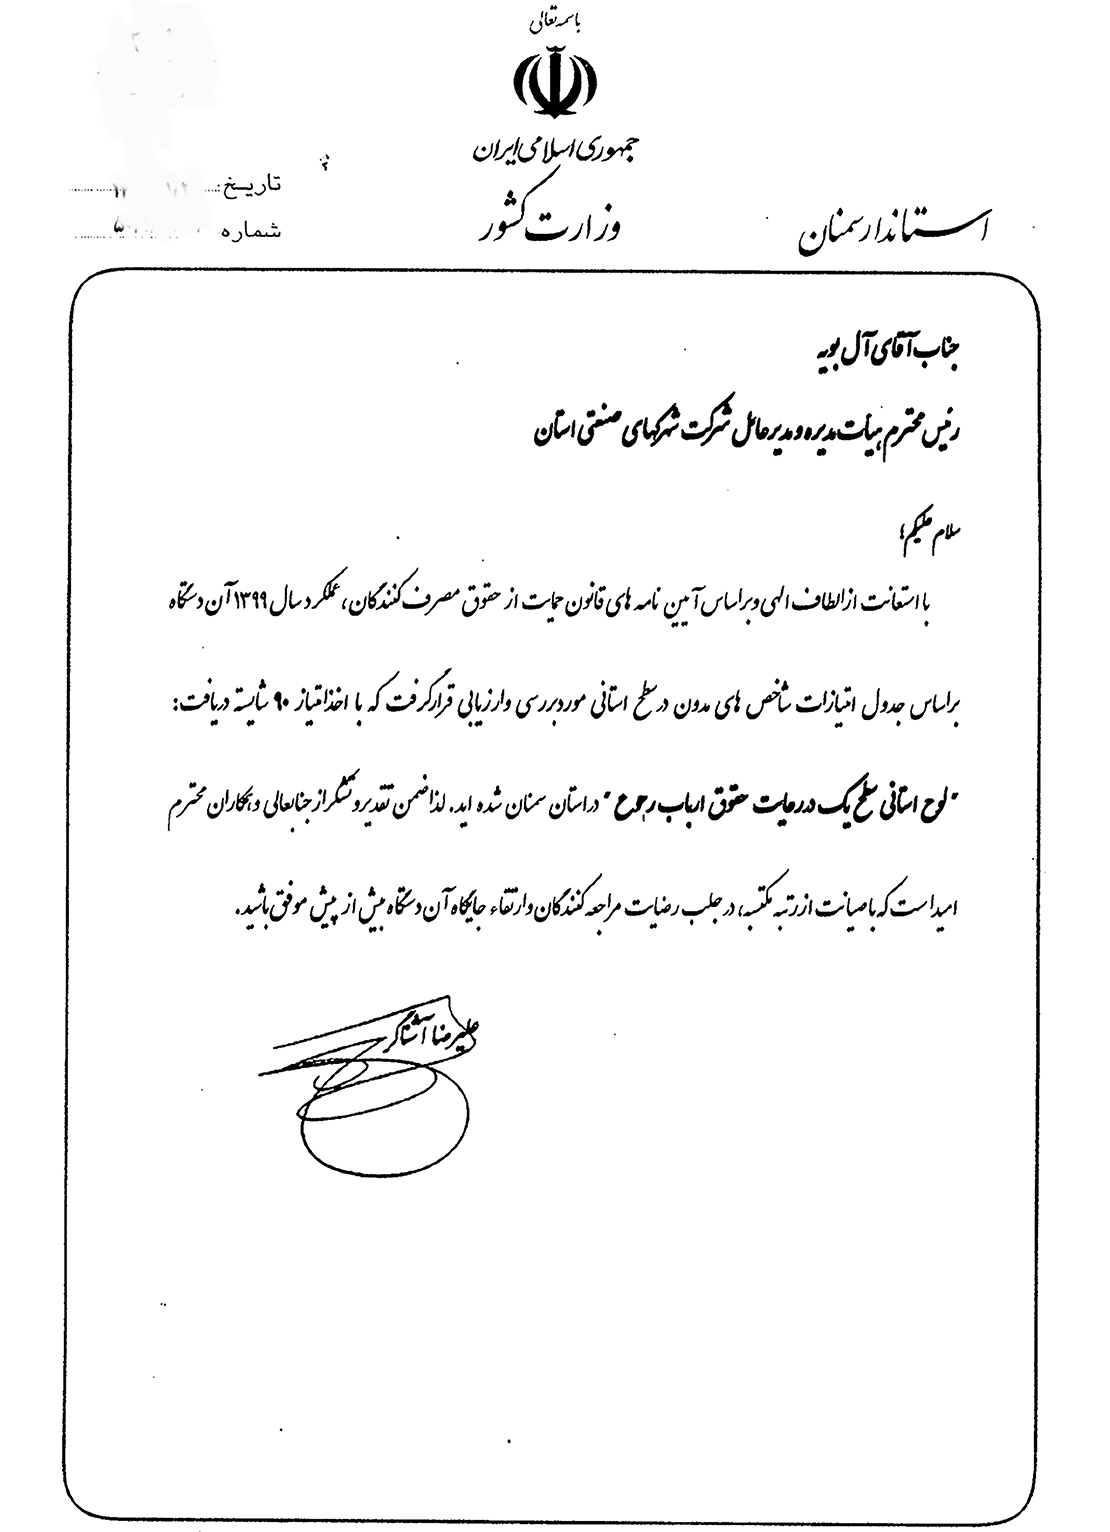 باسمه تعالی
جمهوری اسلامی ایران
وزارت کشور
استاندار سمنان
تاریخ:
شماره
جناب آقای آل بویه
رئیس محترم هیأت مدیره و مدیرعامل شرکت شهرکهای صنعتی استان
سلام علیکم؛
با استعانت از الطاف الهی و براساس آیین نامه های قانون حمایت از حقوق مصرف کنندگان، عملکرد سال ۱۳۹۹ آن دستگاه
براساس جدول امتیازات شاخص های مدون در سطح استانی مورد بررسی و ارزیابی قرار گرفت که با اخذ امتیاز ۹۰ شایسته دریافت:
"لوح استانی سطح یک در رعایت حقوق ارباب رجوع" در استان سمنان شده اید. لذا ضمن تقدیر و تشکر از جنابعالی و همکاران محترم
امید است که با صیانت از رتبه مکتسبه، در جلب رضایت مراجعه کنندگان و ارتقاء جایگاه آن دستگاه بیش از پیش موفق باشید.
علیرضا آشناگر